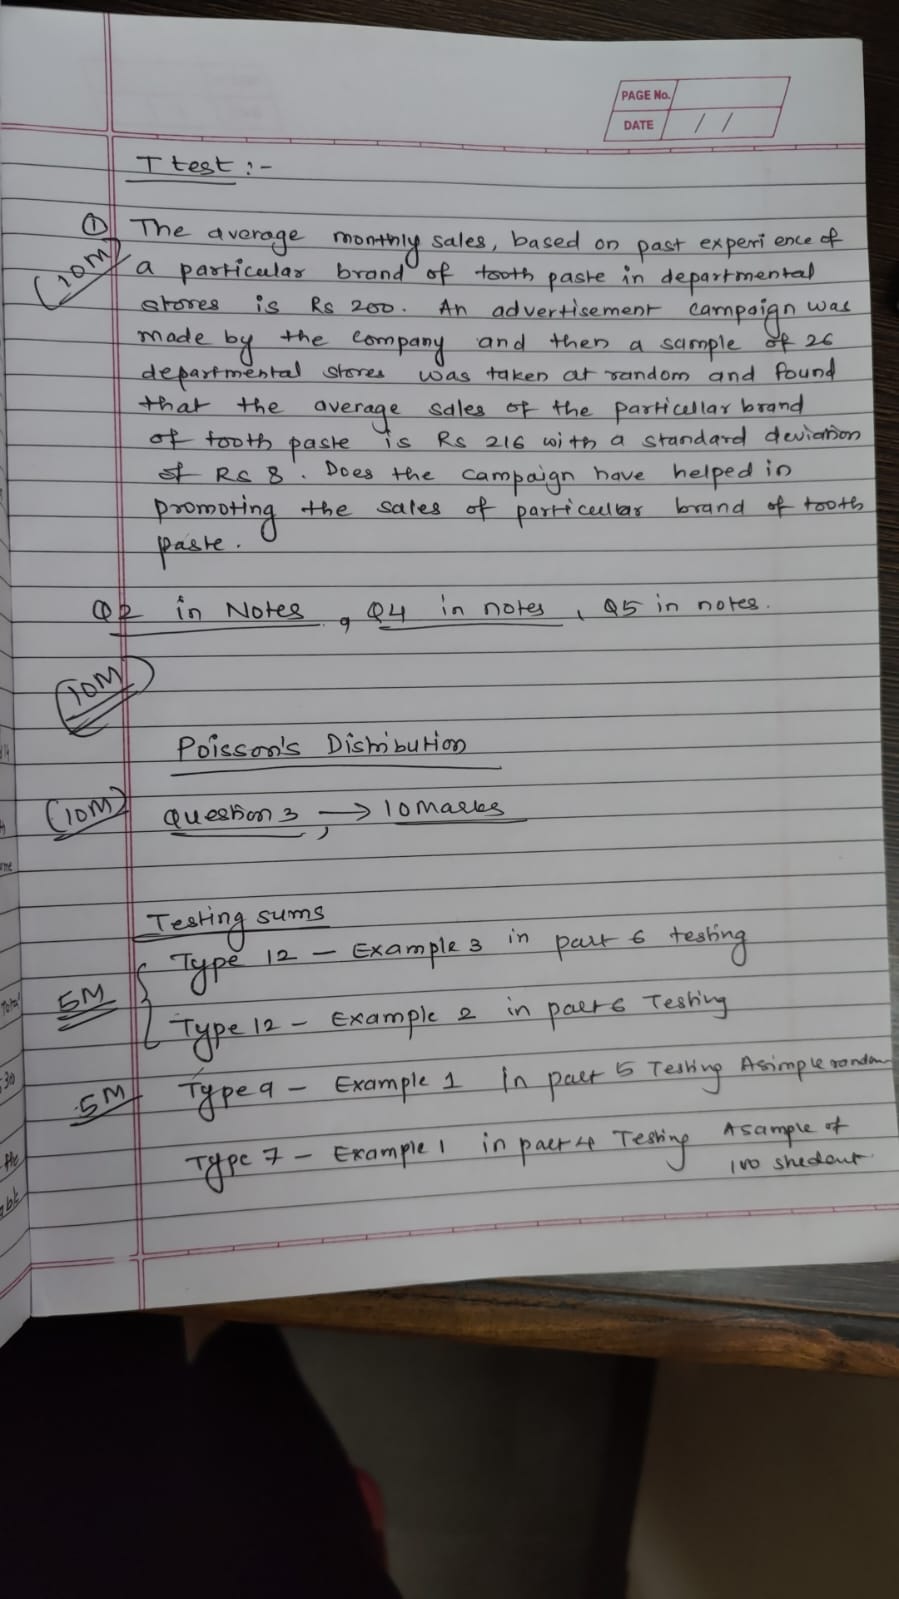 PAGE No.
DATE / /
T test :-
① The average monthly sales, based on past experience of
(10M) a particular brand of tooth paste in departmental
stores is Rs 200. An advertisement campaign was
made by the company and then a sample of 26
departmental stores was taken at random and found
that the average sales of the particular brand
of tooth paste is Rs 216 with a standard deviation
of Rs 8. Does the campaign have helped in
promoting the sales of particular brand of tooth
paste.
Q2 in Notes, Q4 in notes, Q5 in notes.
(10M)
Poisson's Distribution
(10M) Question 3 → 10 Marks
Testing sums
Type 12 - Example 3 in part 6 testing
5M
Type 12 - Example 2 in part 6 Testing
5M Type 9 - Example 1 in part 5 Testing A simple random
Type 7 - Example 1 in part 4 Testing A sample of
100